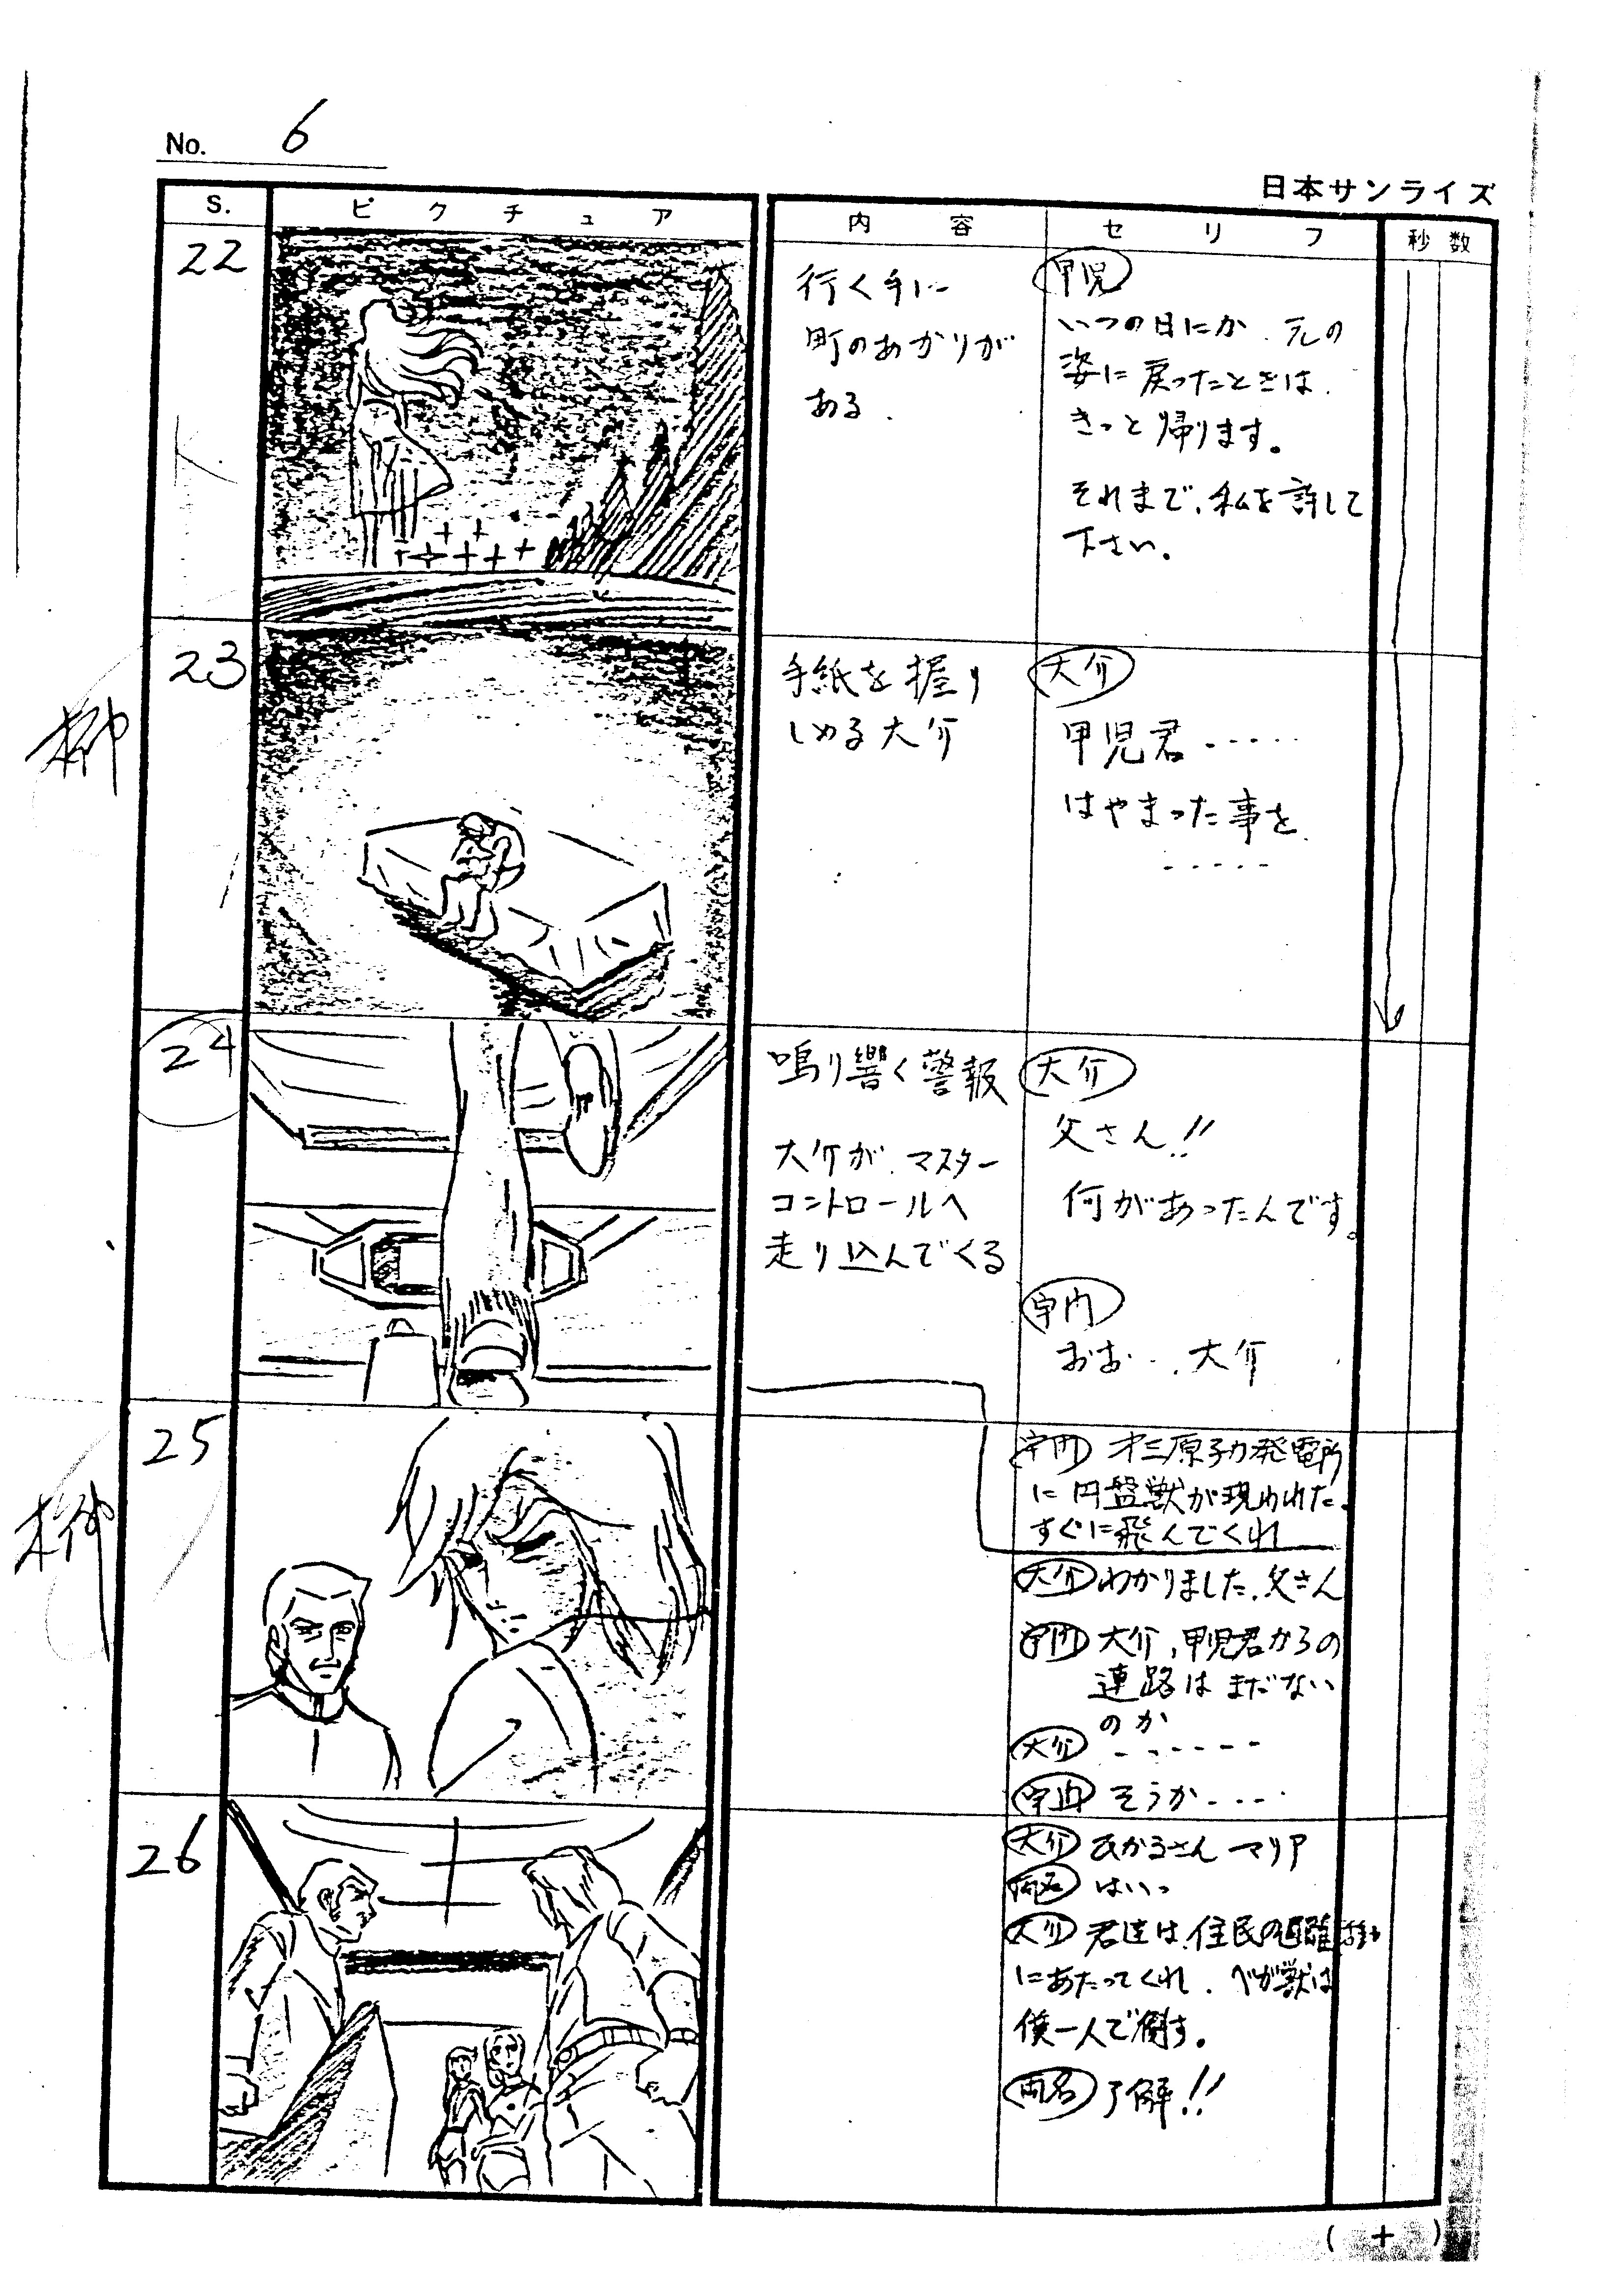 No. 6
日本サンライズ
S. ピクチュア 内容 セリフ 秒数
22
行く手に
町のあかりが
ある.
甲児
いつの日にか、元の
姿に戻ったときは、
きっと帰ります。
それまで、私を許して
下さい。
K.
23
手紙を握り
しめる大介
大介
甲児君‥‥‥
はやまった事を
‥‥‥
24
鳴り響く警報
大介が、マスター
コントロールへ
走り込んでくる
大介
父さん!!
何があったんです。
宇門
おお‥、大介
25
宇門 才三原子力発電所
に円盤獣が現われた、
すぐに飛んでくれ
大介 わかりました、父さん
宇門 大介、甲児君からの
連路はまだない
のか
大介 ‥‥‥
宇門 そうか‥‥
26
大介 ひかるさん マリア
両名 はいっ
大介 君達は、住民の避難
にあたってくれ、ベガ獣は
僕一人で倒す。
両名 了解!!
( + )